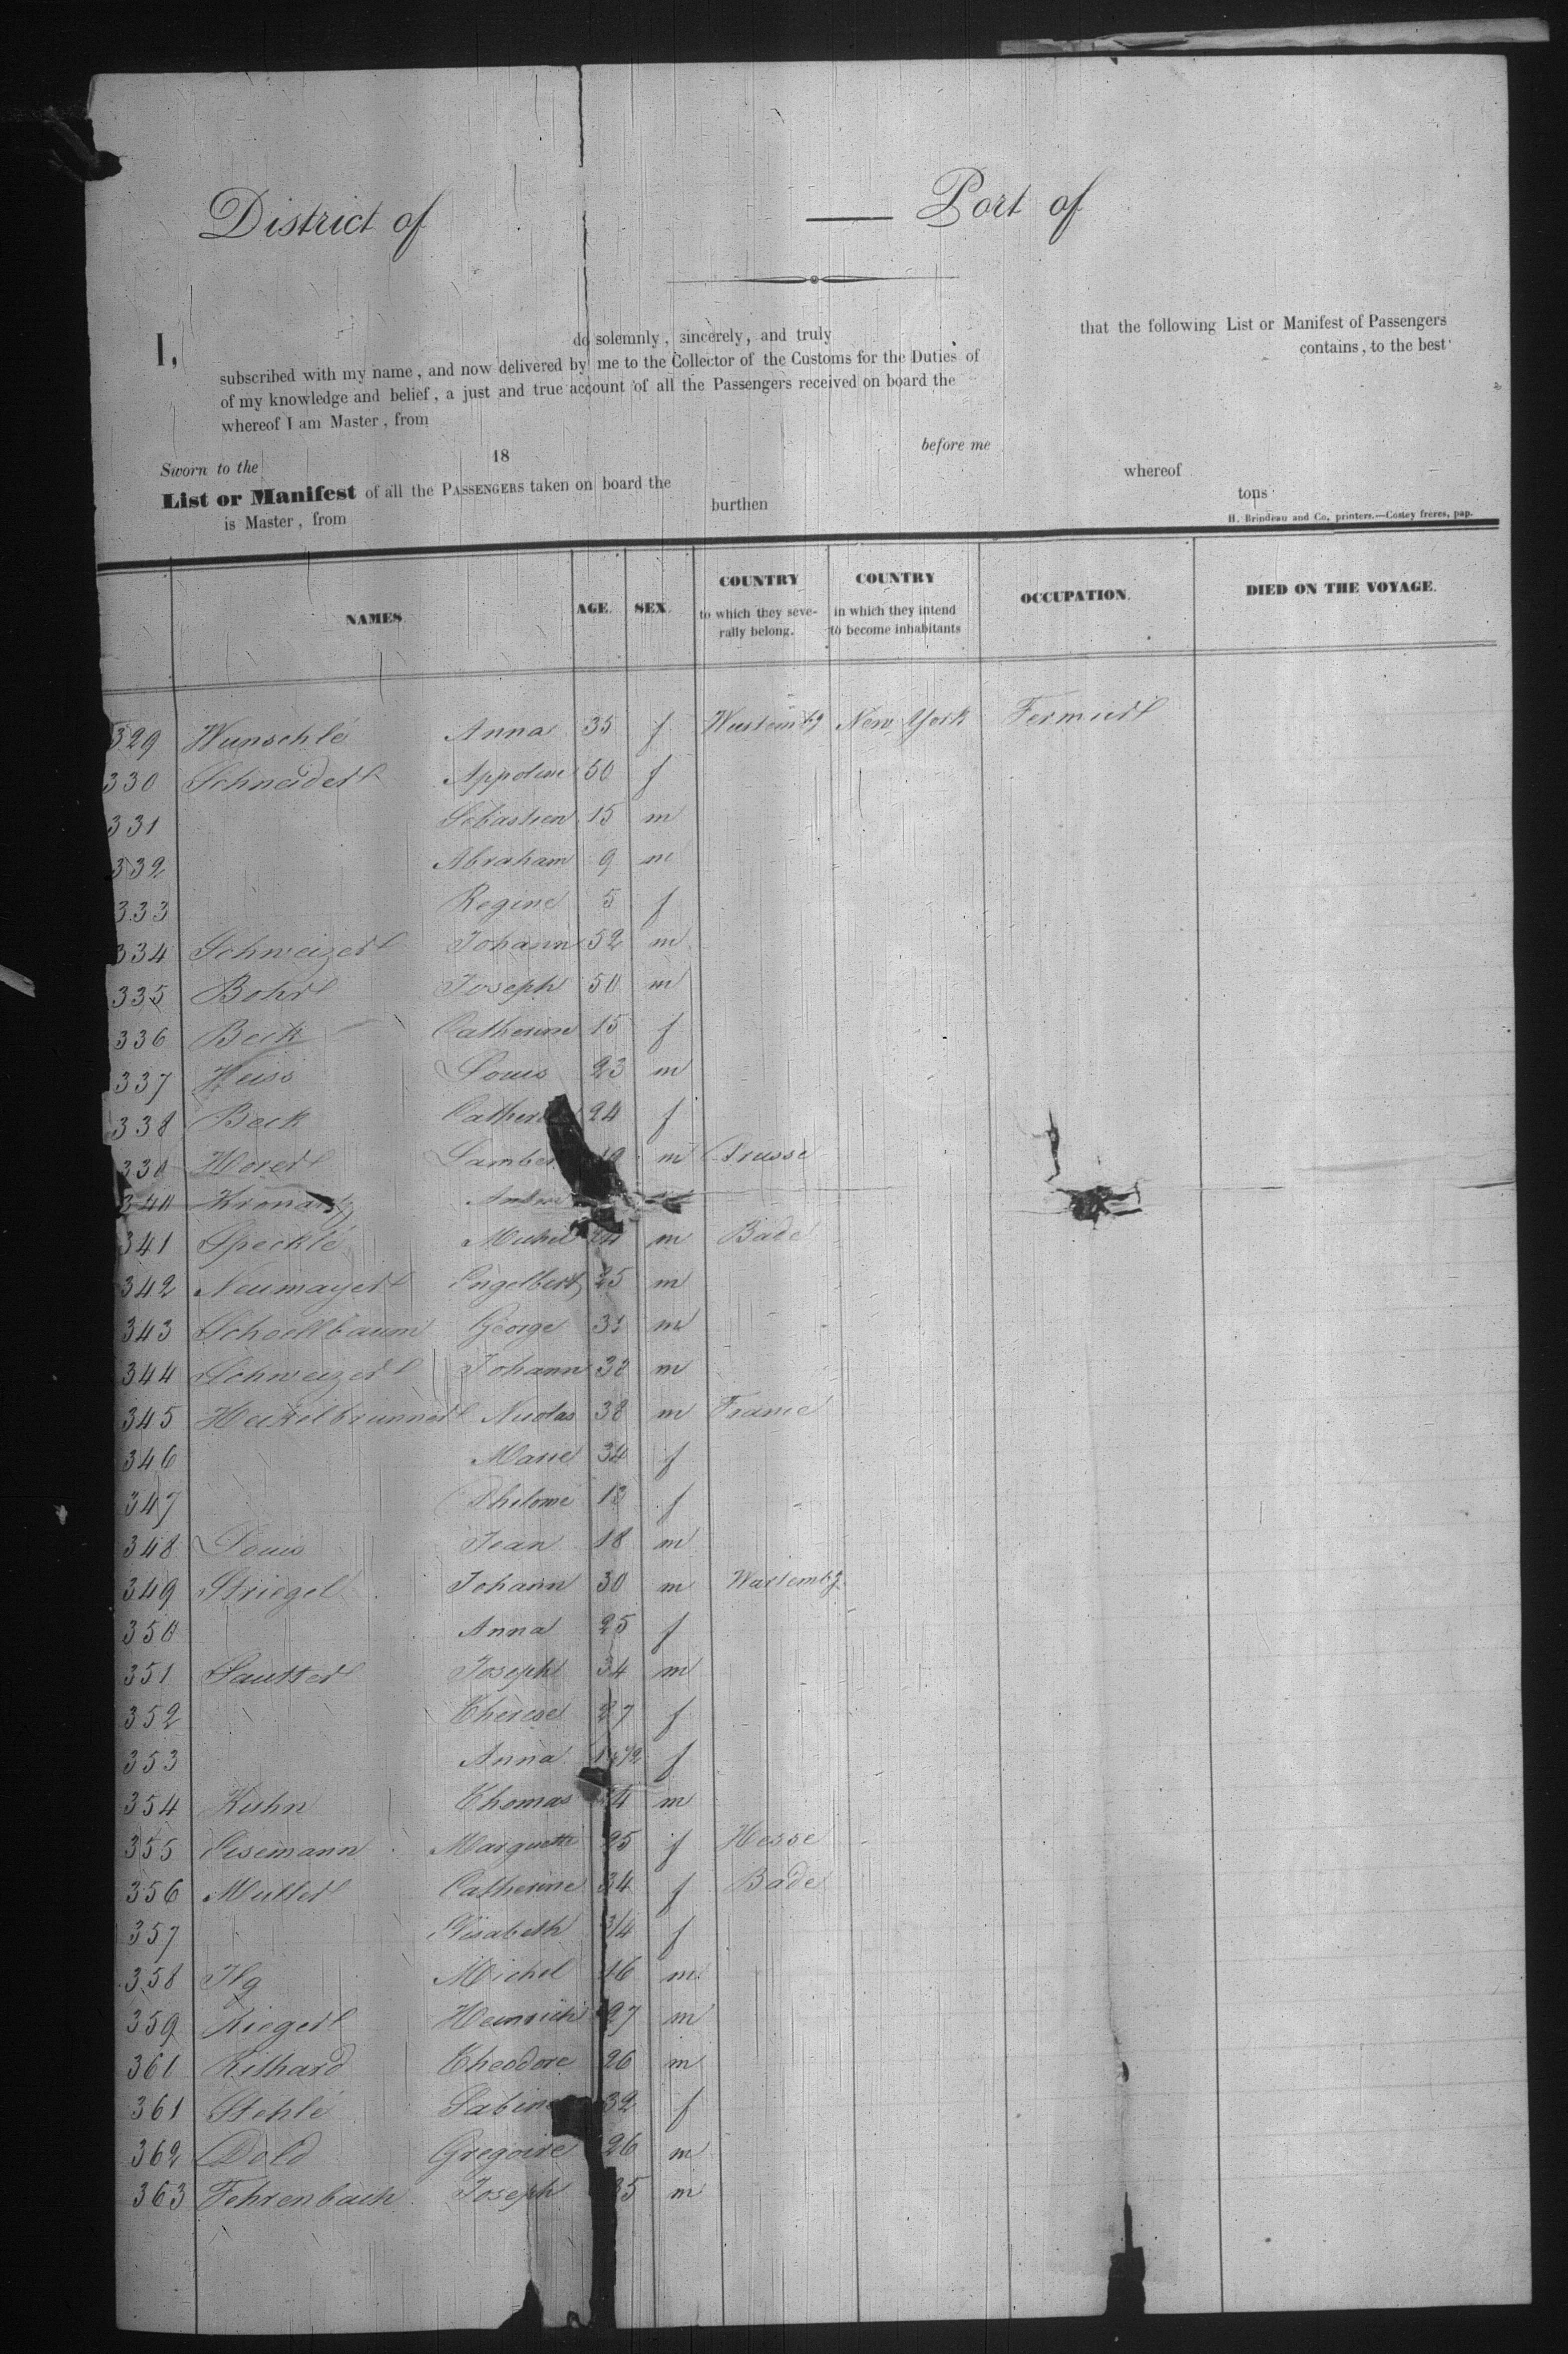 District of — Port of
I, do solemnly, sincerely, and truly that the following List or Manifest of Passengers
subscribed with my name, and now delivered by me to the Collector of the Customs for the Duties of contains, to the best
of my knowledge and belief, a just and true account of all the Passengers received on board the
whereof I am Master, from
Sworn to the 18 before me
List or Manifest of all the PASSENGERS taken on board the whereof
is Master, from burthen tons
H. Brindeau and Co, printers.—Costey frères, pap.
NAMES. AGE. SEX. COUNTRY to which they severally belong. COUNTRY in which they intend to become inhabitants OCCUPATION. DIED ON THE VOYAGE.
329 Wunschlé Anna 35 f Wurtembg New York
330 Schneider Appoline 50 f
331 Sebastien 15 m
332 Abraham 9 m
333 Regine 5 f
334 Schweizer Johann 52 m
335 Bohr Joseph 50 m
336 Beck Catherine 15 f
337 Heiss Louis 23 m
338 Beck 24 f
339 Horer m Prusse
340
341 Specklé Michel m Bade
342 Neumayer Engelbert 25 m
343 Schoellbaum George m
344 Schweizer Johann 32 m
345 Heckelbrunner Nicolas 38 m France
346 Marie 34 f
347 Philome 13 f
348 Louis Jean 18 m
349 Striegel Johann 30 m Wurtembg
350 Anna 25 f
351 Sautter Joseph 34 m
352 Therese 27 f
353 Anna f
354 Kuhn Thomas m
355 Eisemann Marguette 25 f Hesse
356 Mutter Catherine 34 f Bade
357 Elisabeth 3/4 f
358 Ilg Michel 16 m
359 Rieger Heinrich 27 m
361 Rithard Theodore 26 m
361 Stehlé Sabine 32 f
362 Dold Gregoire 26 m
363 Fehrenbach Joseph 35 m